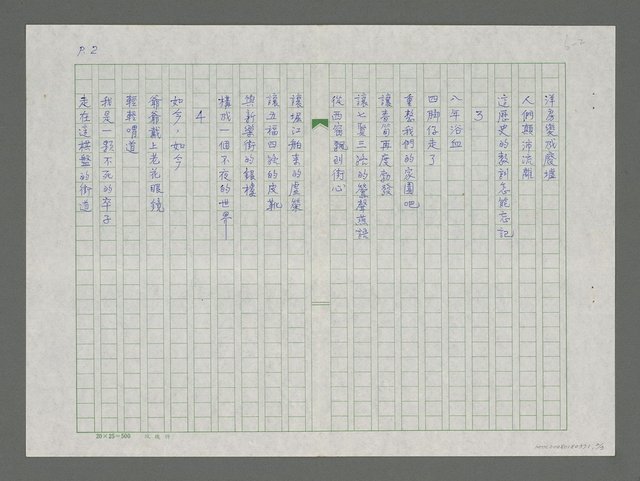 P.2
6-2
洋房變成廢墟
人們顛沛流離
這歷史的教訓怎能忘記
3
八年浴血
四脚仔走了
重整我們的家園吧
讓春筍再度勃發
讓七賢三路的鶯聲燕語
從西窗飄到街心
讓堀江舶來的虛榮
讓五福四路的皮靴
與新樂街的銀樓
構成一個不夜的世界—
4
如今，如今
爺爺戴上老花眼鏡
輕輕喟道
我是一顆不死的卒子
走在這棋盤的街道
20×25=500